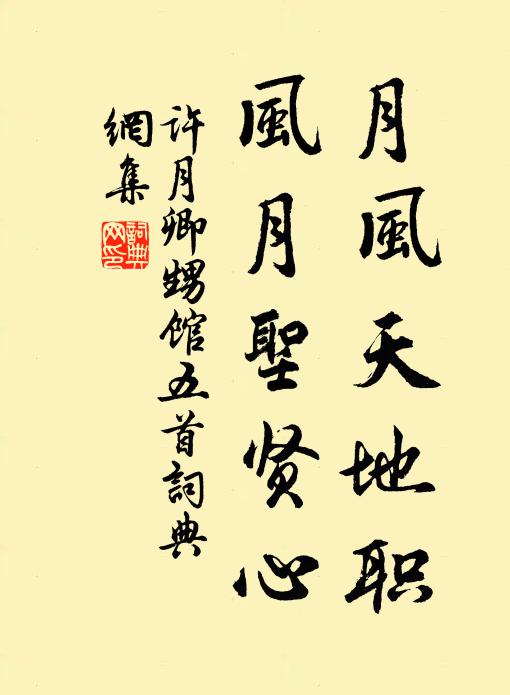 月風天地职
風月聖贤心
许月卿甥馆五首詞典
網集
詞典网印